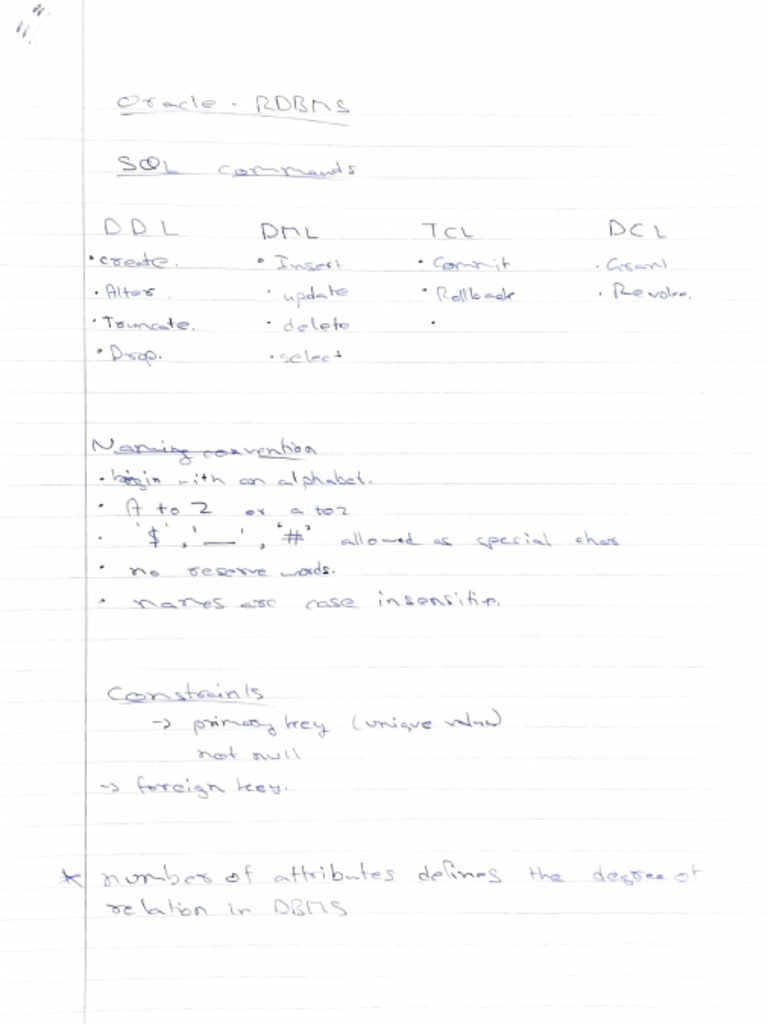 Oracle - RDBMS
SQL commands
DDL DML TCL DCL
• create. • Insert • Commit • Grant
• Alter. • update • Rollback • Revoke.
• Truncate. • delete •
• Drop. • select
Naming convention
• begin with an alphabet.
• A to Z or a to z
• '$', '_', '#' allowed as special char
• no reserve words.
• names are case insensitive.
Constraints
→ primary key (unique value)
not null
→ foreign key.
* number of attributes defines the degree of
relation in DBMS